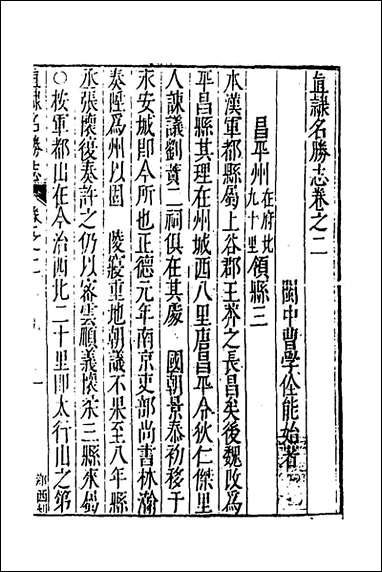 直隸名勝志卷之二
閩中曹學佺能始著
昌平州在府北九十里領縣三
本漢軍都縣屬上谷郡王莽之長昌矣後魏改爲
平昌縣其理在州城西八里唐昌平令狄仁傑里
人諫議劉蕡二祠俱在其處　國朝景泰初移于
永安城即今所也正德元年南京吏部尚書林瀚
奏陞爲州以固　陵寢重地朝議不果至八年縣
丞張懷復奏許之仍以密雲順義懷柔三縣來屬
○按軍都山在今治西北二十里即太行山之第
直隸名勝志
卷之二
一